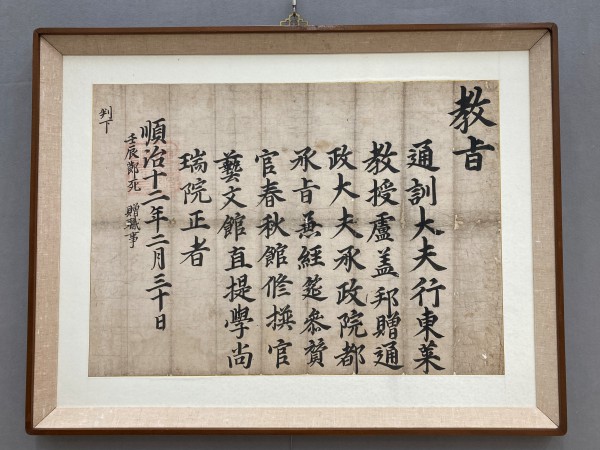 教旨
通訓大夫行東萊
教授盧盖邦贈通
政大夫承政院都
承旨兼經筵參贊
官春秋館修撰官
藝文館直提學尚
瑞院正者
順治十二年二月三十日
壬辰節死 贈職事
判下